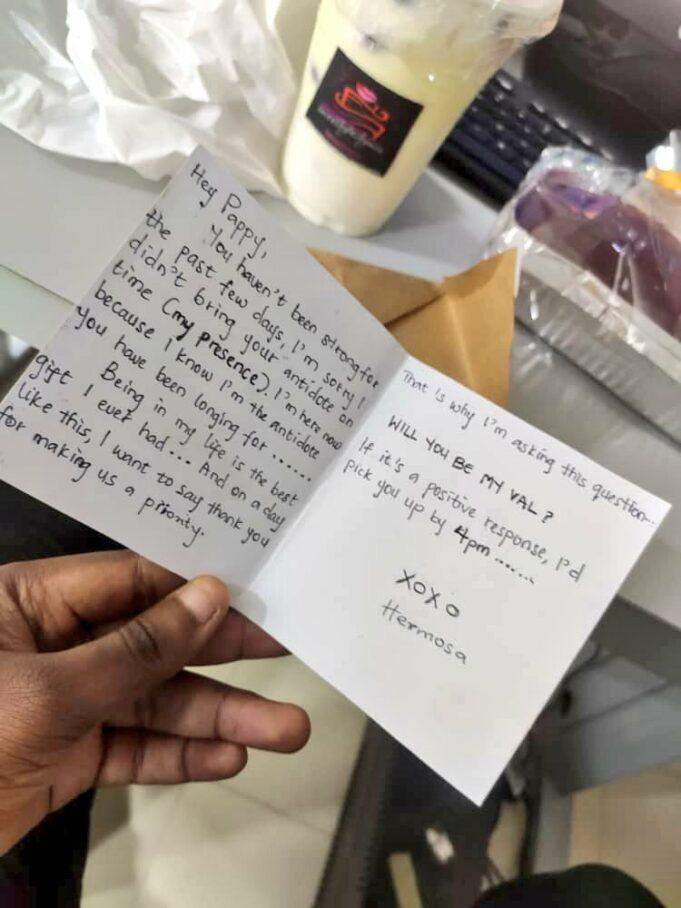 Hey Pappy,
You haven't been strong for
the past few days, I'm sorry I
didn't bring your antidote on
time (my presence). I'm here now
because I know I'm the antidote
you have been longing for ......
Being in my life is the best
gift I ever had... And on a day
like this, I want to say thank you
for making us a priority.
That is why I'm asking this question...
WILL YOU BE MY VAL?
If it's a positive response, I'd
pick you up by 4pm ......
XOXO
Hermosa